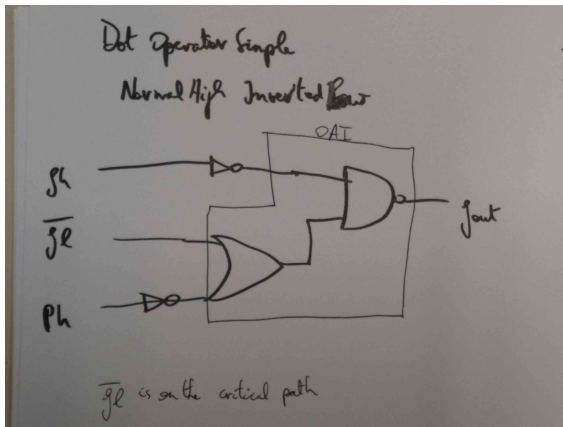 Dot Operator Simple
Normal High Inverted
OAI
gh
g̅l̅
Ph
gout
g̅l̅ is on the critical path